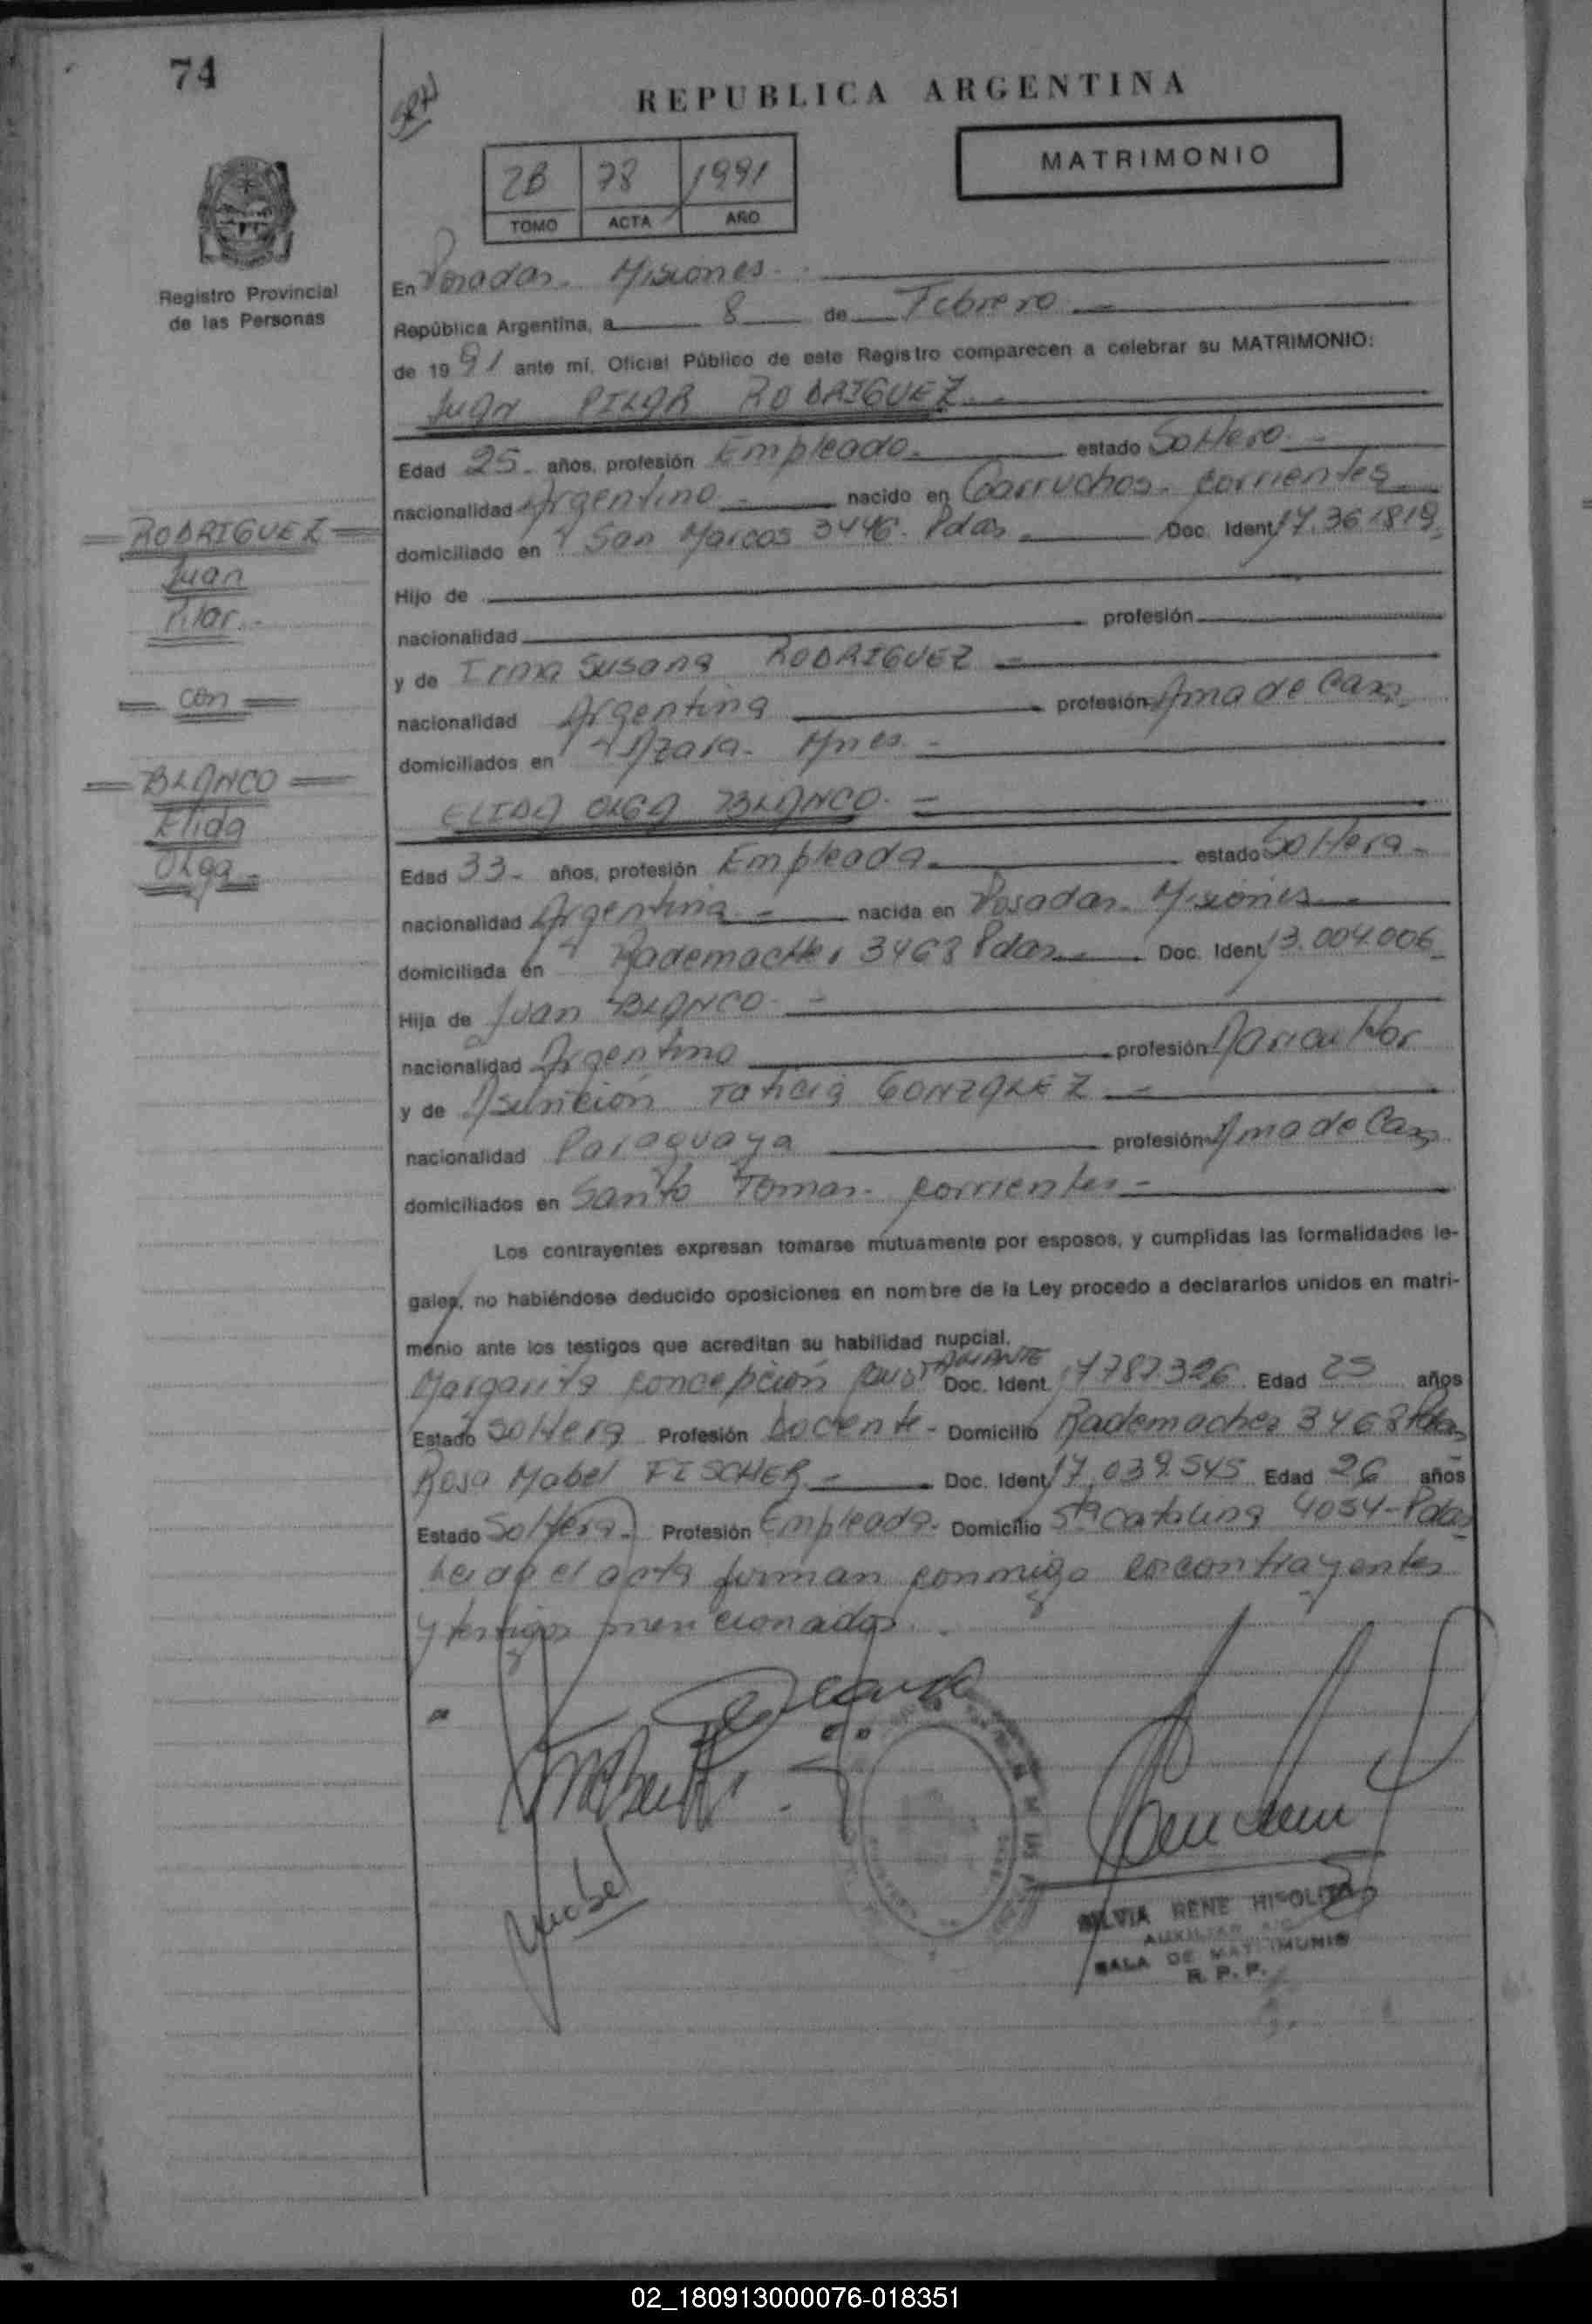 74
REPUBLICA ARGENTINA
MATRIMONIO
2B 78 1991
TOMO ACTA AÑO
Registro Provincial
de las Personas
En Posadas. Misiones.
República Argentina, a 8 de Febrero
de 1991 ante mí, Oficial Público de este Registro comparecen a celebrar su MATRIMONIO:
JUAN PILAR RODRIGUEZ.
Edad 25. años, profesión Empleado. estado Soltero.
nacionalidad Argentino nacido en Garruchos. Corrientes
domiciliado en San Marcos 3446. Pdas. Doc. Ident 17.361819.
Hijo de
nacionalidad profesión
y de Irma Susana RODRIGUEZ
nacionalidad Argentina profesión Ama de Casa
domiciliados en Azara. Mnes.
ELIDA OLGA BLANCO.
Edad 33. años, profesión Empleada. estado Soltera.
nacionalidad Argentina nacida en Posadas. Misiones
domiciliada en Rademacher 3468 Pdas. Doc. Ident 13.004.006
Hija de Juan BLANCO.
nacionalidad Argentino profesión
y de Asunción GONZALEZ
nacionalidad Paraguaya profesión Ama de Casa
domiciliados en Santo Tomas. Corrientes
Los contrayentes expresan tomarse mutuamente por esposos, y cumplidas las formalidades le-
gales, no habiéndose deducido oposiciones en nombre de la Ley procedo a declararlos unidos en matri-
monio ante los testigos que acreditan su habilidad nupcial.
Margarita Concepción Doc. Ident. 17787326 Edad 25 años
Estado Soltera Profesión Docente - Domicilio Rademacher 3468 Pdas
Rosa Mabel FISCHER. Doc. Ident 17.039.545 Edad 26 años
Estado Soltera. Profesión Empleada. Domicilio Sta Catalina 4054-Pdas
Leida el acta firman conmigo los contrayentes
y testigos mencionados.
Mabel
SILVIA RENE HIPOLITO
AUXILIAR
SALA DE MATRIMONIO
R. P. P.
RODRIGUEZ
Juan
Pilar.
con
BLANCO
Elida
Olga
02_180913000076-018351